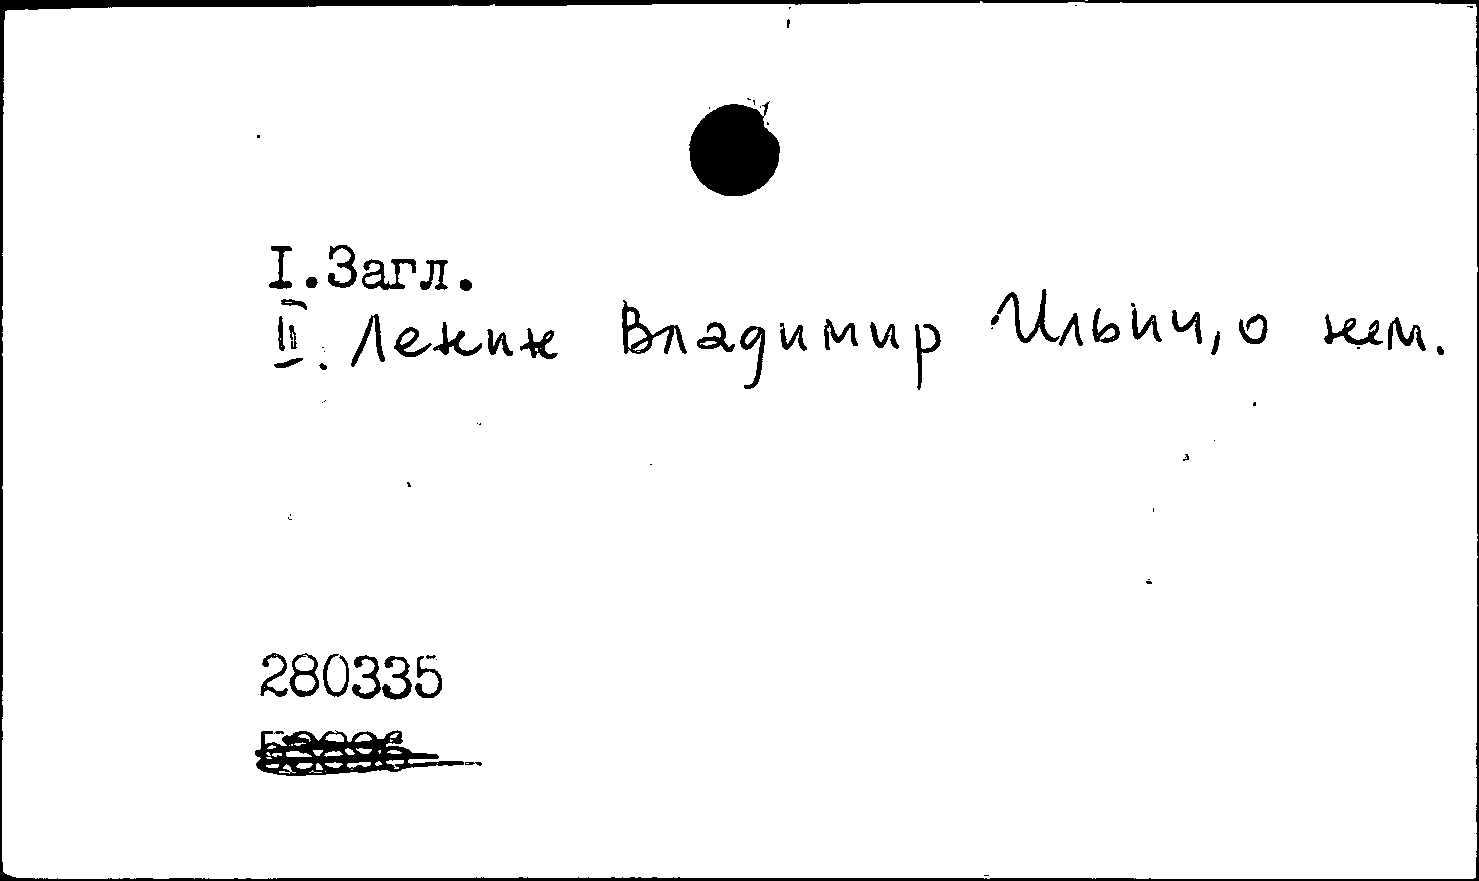 I.Загл.
II. Ленин Владимир Ильич, о нем.
280335